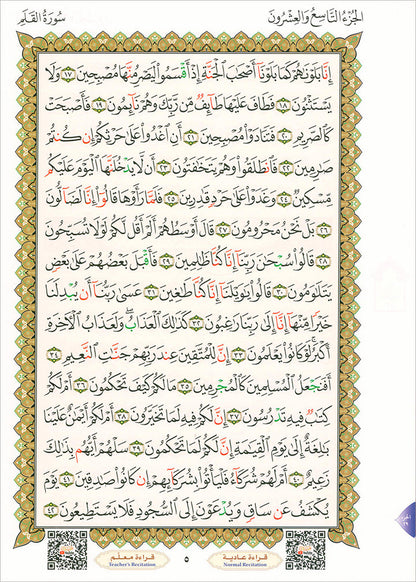 الجزء التاسع والعشرون
سورة القلم
إِنَّا بَلَوْنَٰهُمْ كَمَا بَلَوْنَآ أَصْحَٰبَ ٱلْجَنَّةِ إِذْ أَقْسَمُوا۟ لَيَصْرِمُنَّهَا مُصْبِحِينَ ١٧ وَلَا
يَسْتَثْنُونَ ١٨ فَطَافَ عَلَيْهَا طَآئِفٌ مِّن رَّبِّكَ وَهُمْ نَآئِمُونَ ١٩ فَأَصْبَحَتْ
كَٱلصَّرِيمِ ٢٠ فَتَنَادَوْا۟ مُصْبِحِينَ ٢١ أَنِ ٱغْدُوا۟ عَلَىٰ حَرْثِكُمْ إِن كُنتُمْ
صَٰرِمِينَ ٢٢ فَٱنطَلَقُوا۟ وَهُمْ يَتَخَٰفَتُونَ ٢٣ أَن لَّا يَدْخُلَنَّهَا ٱلْيَوْمَ عَلَيْكُم
مِّسْكِينٌ ٢٤ وَغَدَوْا۟ عَلَىٰ حَرْدٍ قَٰدِرِينَ ٢٥ فَلَمَّا رَأَوْهَا قَالُوٓا۟ إِنَّا لَضَآلُّونَ
٢٦ بَلْ نَحْنُ مَحْرُومُونَ ٢٧ قَالَ أَوْسَطُهُمْ أَلَمْ أَقُل لَّكُمْ لَوْلَا تُسَبِّحُونَ
٢٨ قَالُوا۟ سُبْحَٰنَ رَبِّنَآ إِنَّا كُنَّا ظَٰلِمِينَ ٢٩ فَأَقْبَلَ بَعْضُهُمْ عَلَىٰ بَعْضٍ
يَتَلَٰوَمُونَ ٣٠ قَالُوا۟ يَٰوَيْلَنَآ إِنَّا كُنَّا طَٰغِينَ ٣١ عَسَىٰ رَبُّنَآ أَن يُبْدِلَنَا
خَيْرًا مِّنْهَآ إِنَّآ إِلَىٰ رَبِّنَا رَٰغِبُونَ ٣٢ كَذَٰلِكَ ٱلْعَذَابُ وَلَعَذَابُ ٱلْءَاخِرَةِ
أَكْبَرُ لَوْ كَانُوا۟ يَعْلَمُونَ ٣٣ إِنَّ لِلْمُتَّقِينَ عِندَ رَبِّهِمْ جَنَّٰتِ ٱلنَّعِيمِ ٣٤
أَفَنَجْعَلُ ٱلْمُسْلِمِينَ كَٱلْمُجْرِمِينَ ٣٥ مَا لَكُمْ كَيْفَ تَحْكُمُونَ ٣٦ أَمْ لَكُمْ
كِتَٰبٌ فِيهِ تَدْرُسُونَ ٣٧ إِنَّ لَكُمْ فِيهِ لَمَا تَخَيَّرُونَ ٣٨ أَمْ لَكُمْ أَيْمَٰنٌ عَلَيْنَا
بَٰلِغَةٌ إِلَىٰ يَوْمِ ٱلْقِيَٰمَةِ إِنَّ لَكُمْ لَمَا تَحْكُمُونَ ٣٩ سَلْهُمْ أَيُّهُم بِذَٰلِكَ
زَعِيمٌ ٤٠ أَمْ لَهُمْ شُرَكَآءُ فَلْيَأْتُوا۟ بِشُرَكَآئِهِمْ إِن كَانُوا۟ صَٰدِقِينَ ٤١ يَوْمَ
يُكْشَفُ عَن سَاقٍ وَيُدْعَوْنَ إِلَى ٱلسُّجُودِ فَلَا يَسْتَطِيعُونَ ٤٢
قراءة عادية
Normal Recitation
٥
قراءة معلم
Teacher's Recitation